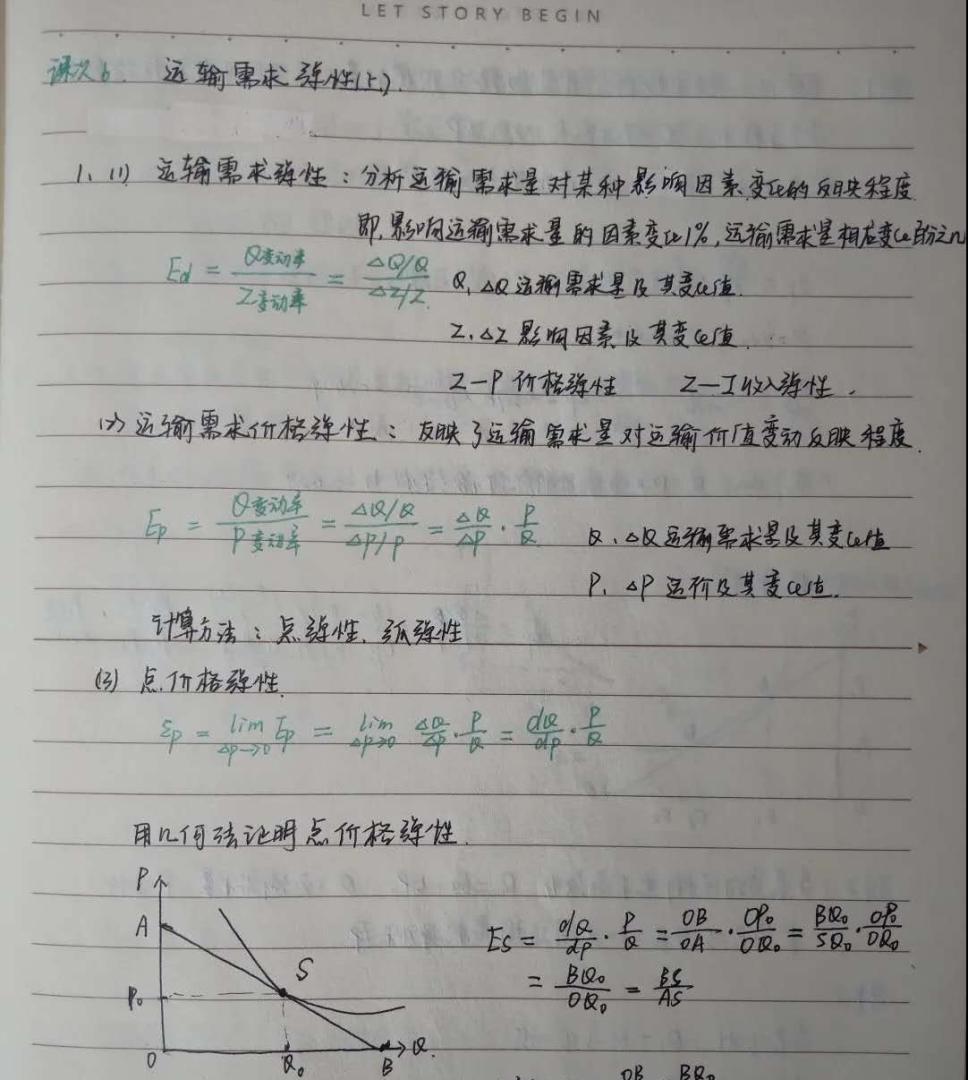 LET STORY BEGIN
课次6. 运输需求弹性(上).
1、(1) 运输需求弹性：分析运输需求量对某种影响因素变化的反映程度
即,影响运输需求量的因素变化1%,运输需求量相应变化百分之n
Ed = Q变动率/Z变动率 = (△Q/Q)/(△Z/Z) Q,△Q运输需求量及其变化值.
Z.△Z影响因素及其变化值.
Z—P价格弹性 Z—I收入弹性.
(2)运输需求价格弹性：反映了运输需求量对运输价值变动反映程度.
Ep = Q变动率/P变动率 = (△Q/Q)/(△P/P) = △Q/△P · P/Q Q、△Q运输需求量及其变化值
P、△P运价及其变化值.
计算方法：点弹性、弧弹性
(3) 点价格弹性.
εp = lim △p→0 Ep = lim △p→0 △Q/△P · P/Q = dQ/dP · P/Q
用几何法证明点价格弹性.
P
A
S
P₀
O
Q₀
B
Q.
Es = dQ/dP · P/Q = OB/OA · OP₀/OQ₀ = BQ₀/SQ₀ · OP₀/OQ₀
= BQ₀/OQ₀ = BS/AS
OB BQ₀